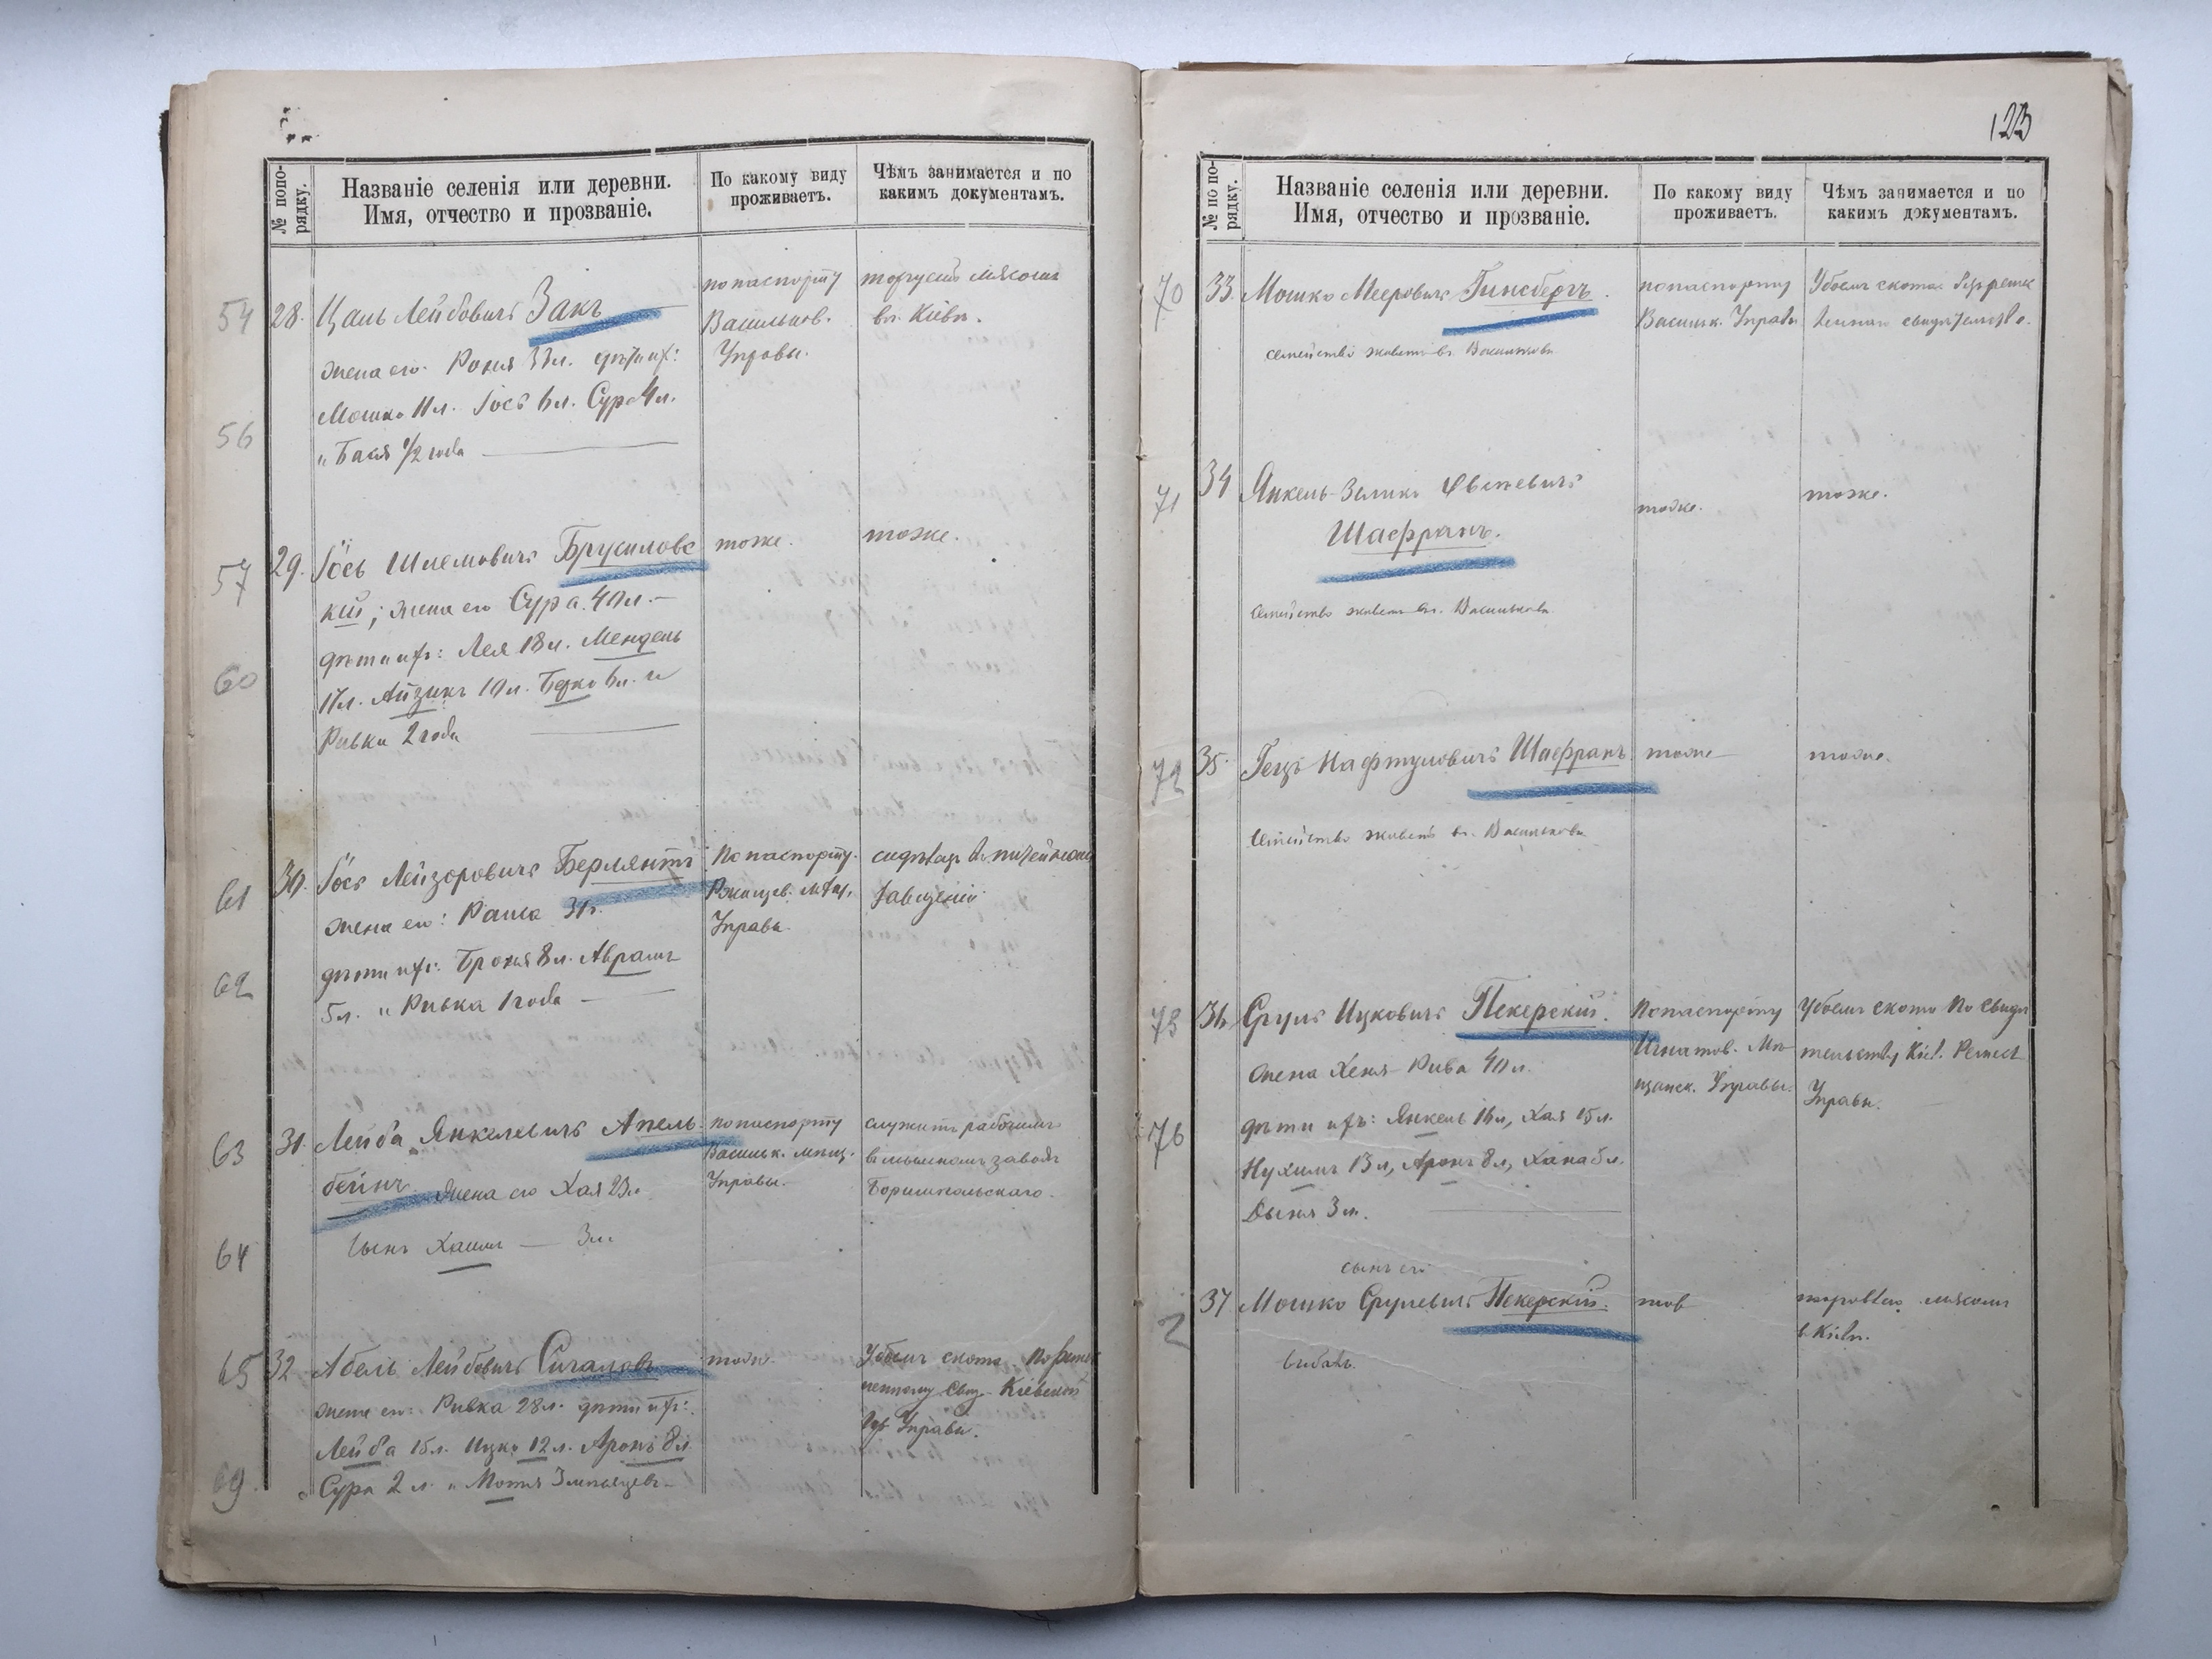 № попо-
рядку.
Названіе селенія или деревни.
Имя, отчество и прозваніе.
По какому виду
проживаетъ.
Чѣмъ занимается и по
какимъ документамъ.
54 28. Лейбовичъ Закъ
жена его Роня 33 л. дѣти ихъ:
Мошко 11 л. Іось 6 л. Сура 4 л.
56
" Бася 1/2 года
по паспорту
Васильков.
Управы.
торгуетъ мясомъ
въ Кіевѣ.
57 29. Іось Шлемовичъ Брусиловс
кій; жена его Сура 40 л. —
дѣти ихъ: Лея 18 л. Мендель
60
17 л. Айзикъ 10 л. Берко 6 л. и
Ривка 2 года
тоже.
тоже.
61 30. Іось Лейзоровичъ Берлянтъ
жена его: Раиса 31 г.
дѣти ихъ: Броня 8 л. Аврамъ
62
5 л. " Ривка 1 года —
По паспорту
Ржищев. Мѣщ.
Управы.
сидѣлец в питейномъ
заведеніи
63 31. Лейба Янкелевичъ Апель
бейнъ. Жена его Хая 23 л.
64
сынъ Хаимъ — 3 л.
по паспорту
Васильк. мѣщ.
Управы.
служитъ рабочимъ
в мыльномъ заводѣ
Боришпольскаго.
65 32 Абель Лейбовичъ Сигаловъ
жена его: Ривка 28 л. дѣти ихъ:
Лейба 15 л. Ицко 12 л. Аронъ 8 л.
69.
Сура 2 л. " Мотя 3 мѣсяцевъ —
тоже.
Убоемъ скота. По ремес
ленному Свид. Кіевской
Управы.
123
№ по по-
рядку.
Названіе селенія или деревни.
Имя, отчество и прозваніе.
По какому виду
проживаетъ.
Чѣмъ занимается и по
какимъ документамъ.
70 33. Мошко Мееровичъ Гинсбергъ.
семейство живетъ въ Васильковѣ
по паспорту
Васильк. Управы
Убоемъ скота.
свидѣтельство.
71 34 Янкель-Зелик
Шафранъ.
Семейство живетъ въ Васильковѣ
тоже.
тоже.
72 35. Гецъ Нафтуловичъ Шафранъ
Семейство живетъ въ Васильковѣ
тоже
тоже.
73 36 Сруль Ицковичъ Пекерскій.
жена Хеня-Рива 40 л.
76
дѣти ихъ: Янкель 16 л., Хая 15 л.
Нухимъ 13 л., Аронъ 8 л., Хана 5 л.
3 л.
По паспорту
Игнатов. Мѣ
щанск. Управы.
Убоемъ скота по свидѣ
тельству Кіев. Ремесл
Управы.
сынъ его
2 37 Мошко Срулевичъ Пекерскій.
тоже
торговлею мясомъ
в Кіевѣ.